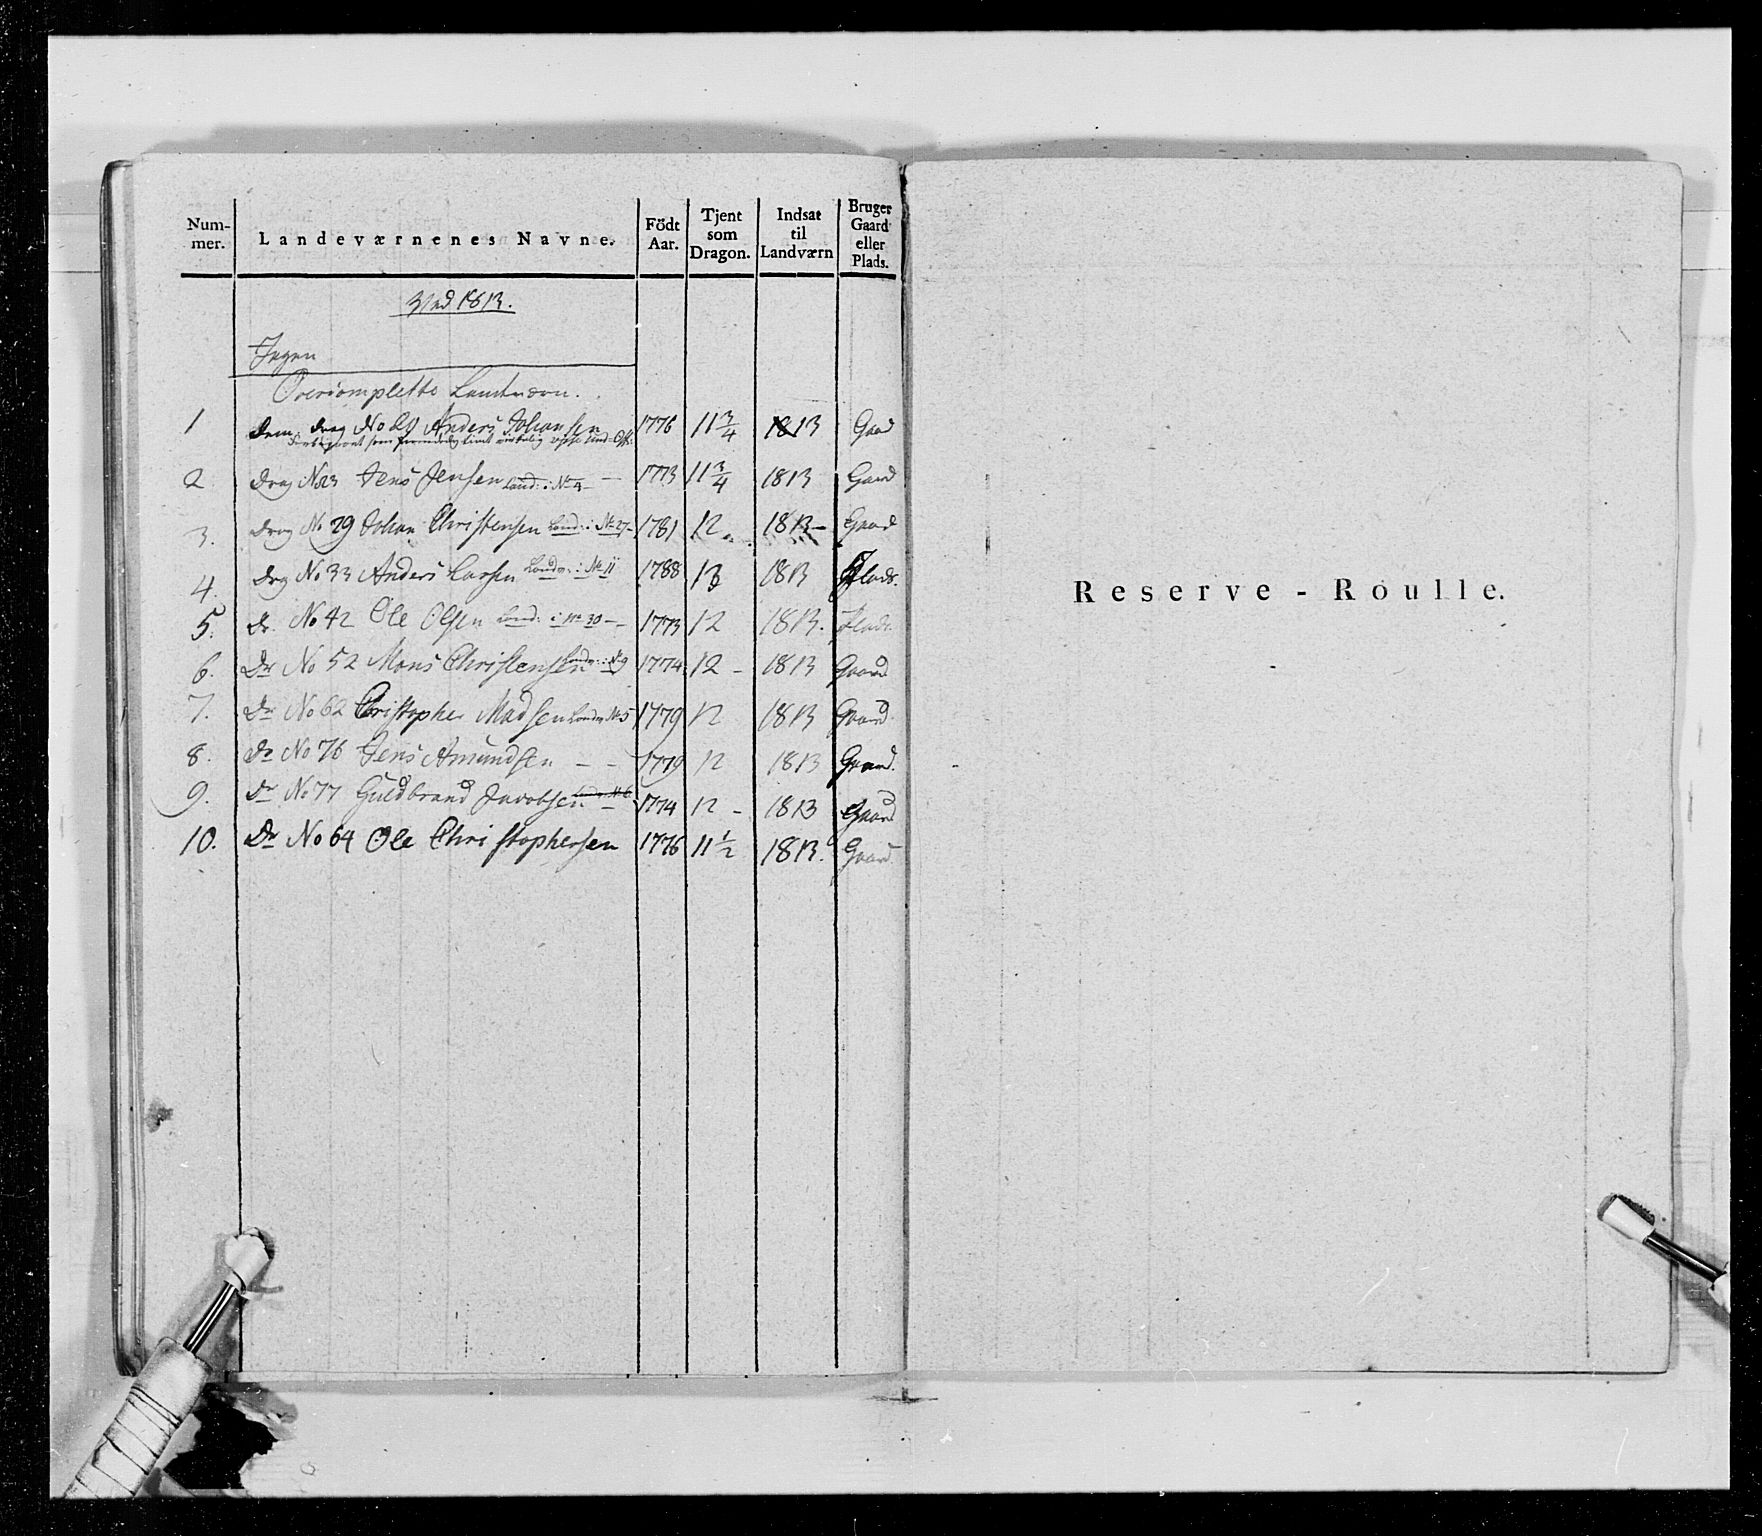 Num-mer. Landeværnenes Navne. Födt Aar. Tjent som Dragon. Indsat til Landværn Bruger Gaard eller Plads.
1813.
Ingen
Overcomplette Landværn.
1 Drag No Anders Johansen 1776 11 3/4 1813 Gaard
2 Drag No 23 Jens Jensen Land: i No 4 — 1773 11 3/4 1813 Gaard
3. Drag No 29 Johan Christensen Land: i No 27 1781 12 1813 Gaard
4. Drg No 33 Anders Larsen Landv: i No 11 1788 13 1813 Plads.
5. Dr. No 42 Ole Olsen Land: i No 30 — 1773 12 1813. Plads.
6. Dr No 52 Mons Christensen No 9 1774 12 - 1813 Gaard
7. Dr No 62 Christopher Madsen Landv No 5 1779 12 1813 Gaard
8. Dr No 76 Jens Amundsen - - 1779 12 1813 Gaard.
9. Dr No 77 Guldbrand Jacobsen No 6 1774 12 - 1813 Gaard
10. Dr No 64 Ole Christophersen 1776 11 1/2 1813. Gaard
Reserve-Roulle.